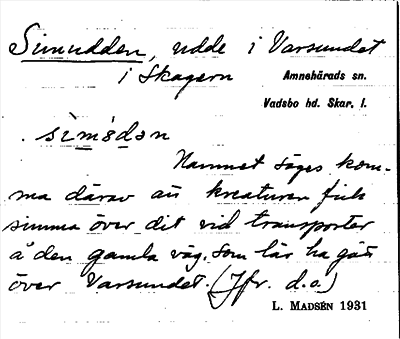 Simudden, udde i Varsundet
i Skagern
Amnehärads sn.
Vadsbo hd. Skar. l.
Namnet säges kom-
ma därav att kreaturen fick
simma över dit vid transporter
å den gamla väg, som lär ha gått
över Varsundet. (Jfr. d.o.)
L. MADSÉN 1931